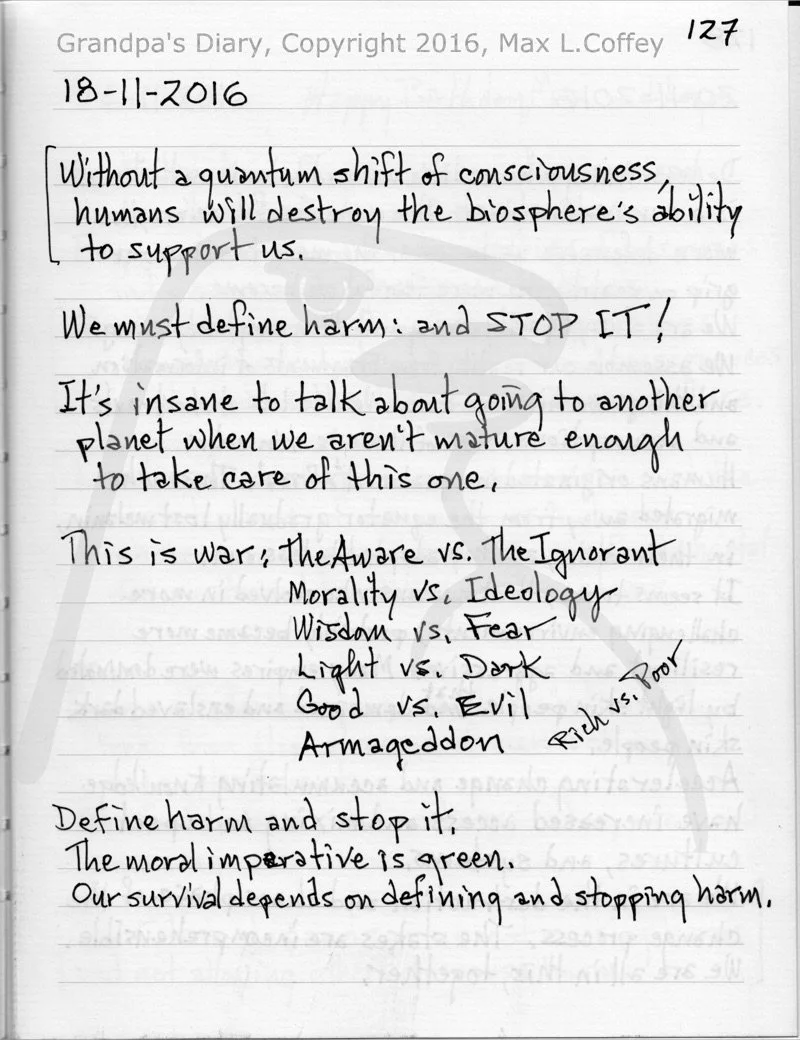 Grandpa's Diary, Copyright 2016, Max L.Coffey
127
18-11-2016
Without a quantum shift of consciousness,
humans will destroy the biosphere's ability
to support us.
We must define harm: and STOP IT!
It's insane to talk about going to another
planet when we aren't mature enough
to take care of this one.
This is war: The Aware vs. The Ignorant
Morality vs. Ideology
Wisdom vs. Fear
Light vs. Dark
Good vs. Evil
Armageddon
Rich vs. Poor
Define harm and stop it.
The moral imperative is green.
Our survival depends on defining and stopping harm.